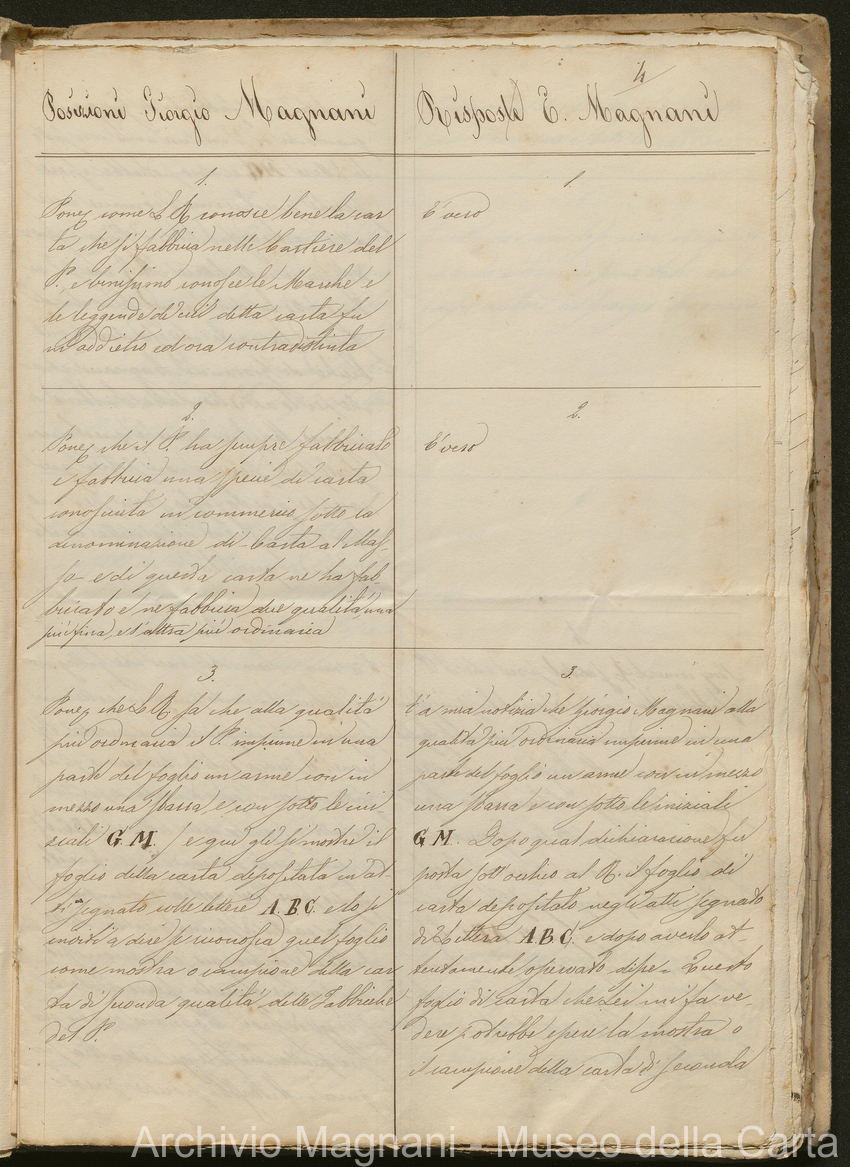 4
Posizioni Giorgio Magnani
1.
Ponq come L R conosce bene la car
ta che si fabbrica nelle Cartiere del
P. e benissimo conosce le Marche e
le leggende di cui detta carta fu
in addietro ed ora contradistinta
2.
Ponq che il P. ha sempre fabbricato
e fabbrica una specie di carta
conosciuta in commercio sotto la
denominazione di Carta al Mas-
so e di questa carta ne ha fab-
bricato e ne fabbrica due qualità, una
più fina, e l'altra più ordinaria
3.
Ponq che L R. sa che alla qualità
più ordinaria il P. imprime in una
parte del foglio un arme con in
mezzo una sbarra, e con sotto le ini-
ziali G. M. e qui gli si mostra il
foglio della carta depositata in at-
ti segnato colle lettere A. B. C. e lo si
inviti a dire se riconosca quel foglio
come mostra o campione della car
ta di seconda qualità delle Fabbriche
del P.
Risposte E. Magnani
1.
E' vero
2.
E' vero
3.
E' a mia notizia che Giorgio Magnani alla
qualità più ordinaria imprime in una
parte del foglio un arme con in mezzo
una sbarra e con sotto le iniziali
G. M. Dopo qual dichiarazione fu
posta sott'occhio al R. il foglio di
carta depositato negli atti segnato
di Lettera A. B. C. e dopo averlo at-
tentamente osservato disse = Questo
foglio di carta che Lei mi fa ve-
dere potrebbe essere la mostra o
il campione della carta di seconda
Archivio Magnani - Museo della Carta